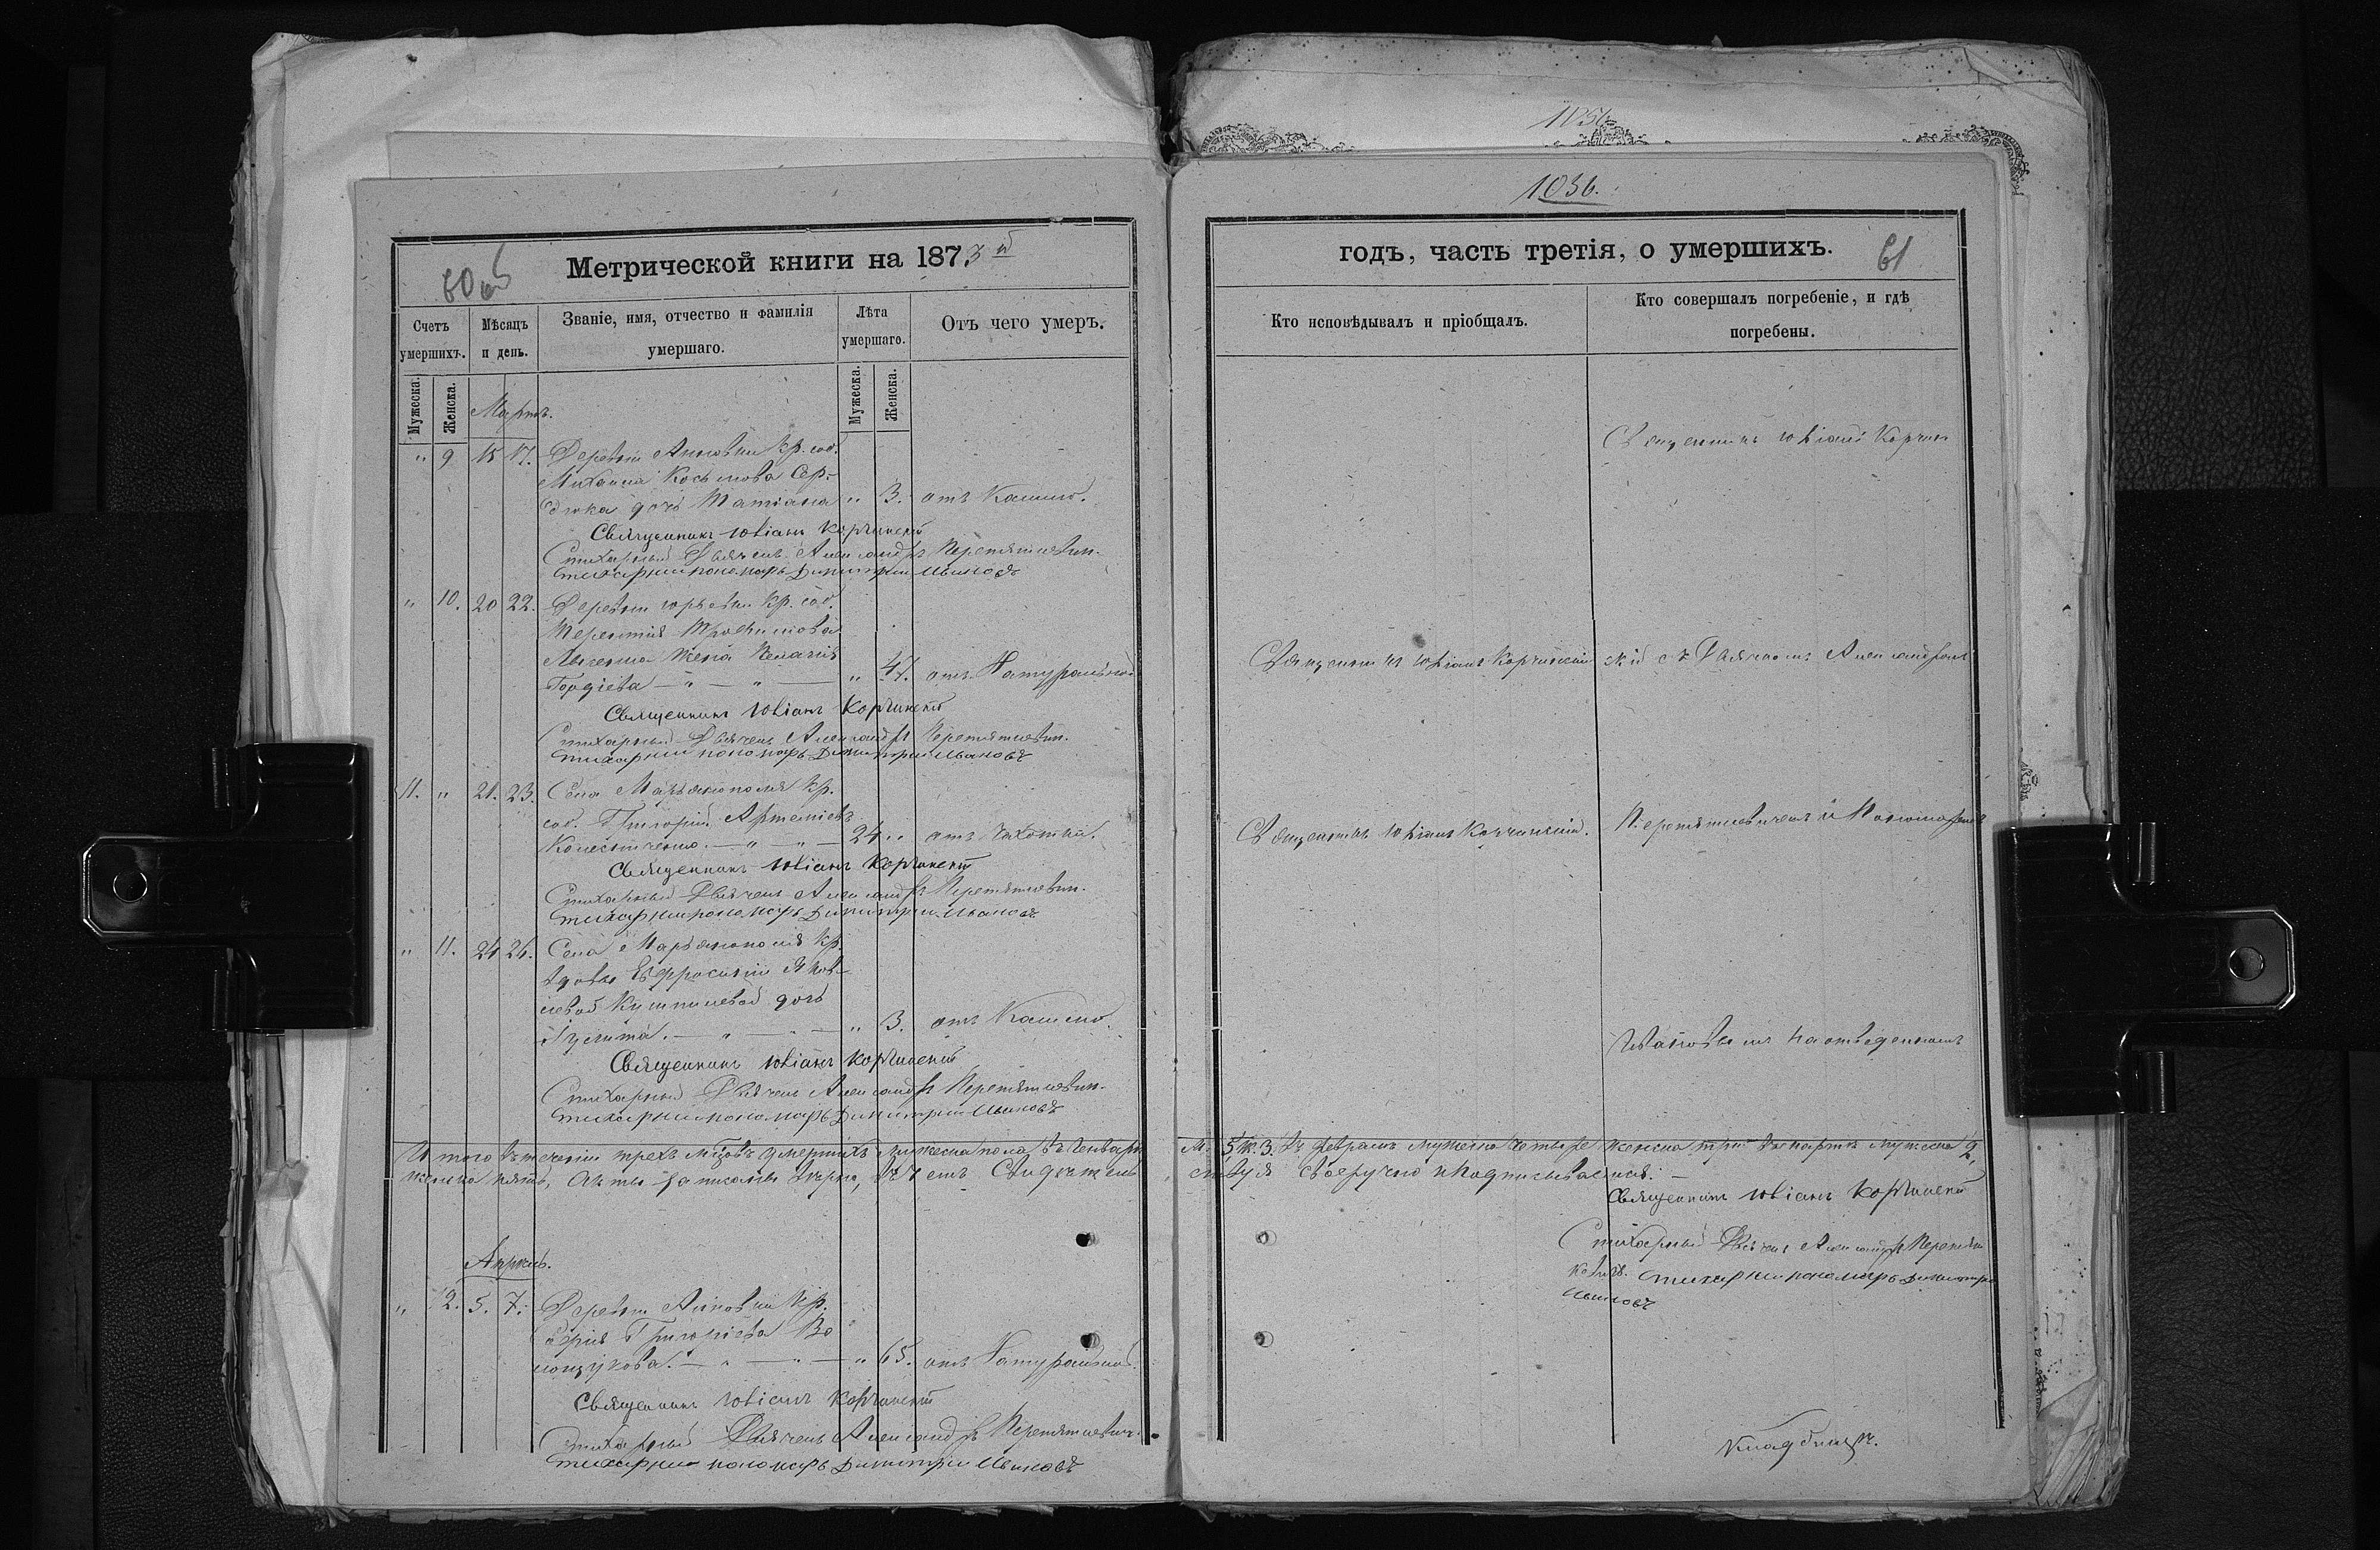 1036.
1036.
60 об
Метрической книги на 1873й
Счетъ умершихъ.
Мѣсяцъ и день.
Званіе, имя, отчество и фамилія умершаго.
Лѣта умершаго.
Отъ чего умеръ.
Мужеска.
Женска.
Мужеска.
Женска.
Мартъ.
" 9 15 17. Деревни Кр. соб.
Михаила Косьмова Сер-
дюка дочь Татіана " 3. отъ Кашлю.
Священникъ Іовіанъ Корчинскій
Стихарный Дьячекъ Александръ Перетятковичъ.
Стихарный пономарь Димитрій Ивановъ
" 10. 20 22. Деревни Юрьевки Кр. соб.
Терентія Трофимова
жена Пелагія
Гордіева — " — " — " 47. отъ Натуральной
Священникъ Іовіанъ Корчинскій
Стихарный Дьячекъ Александръ Перетятковичъ.
Стихарный пономарь Димитрій Ивановъ
11. " 21. 23. Села Марьянополя Кр.
соб. Григорій Артеміевъ
— " — " — 24 " отъ Чахотки.
Священникъ Іовіанъ Корчинскій
Стихарный Дьячекъ Александръ Перетятковичъ.
Стихарный пономарь Димитрій Ивановъ
" 11. 24 26. Села Марьянополя Кр.
вдовы Евфросиніи Яков-
левой дочь
— " — " — " 3. отъ Кашлю.
Священникъ Іовіанъ Корчинскій
Стихарный Дьячекъ Александръ Перетятковичъ.
Стихарный пономарь Димитрій Ивановъ
Итого въ теченіи трехъ умершихъ мужеска пола въ Генварѣ
женска пять, Акты записаны вѣрно, въ чемъ Свидѣтель
Апрѣль.
" 12. 5. 7. Деревни Кр.
Григоріева Во
— " — " — " 65. отъ Натуральной.
Священникъ Іовіанъ Корчинскій
Стихарный Дьячекъ Александръ Перетятковичъ.
Стихарный пономарь Димитрій Ивановъ
годъ, часть третія, о умершихъ.
61
Кто исповѣдывалъ и пріобщалъ.
Кто совершалъ погребеніе, и гдѣ погребены.
Священникъ Іовіанъ Корчин
Священникъ Іовіанъ Корчинскій
скій съ Дьячкомъ Александромъ
Священникъ Іовіанъ Корчинскій.
Перетятковичемъ и Пономаремъ
Ивановымъ на отведенномъ
М. 5 Ж. 3. въ февралѣ мужеска четыре женска три въ мартѣ мужеска 2,
ствуя своеручно и подписываемся: —
Священникъ Іовіанъ Корчинскій
Стихарный Дьячекъ Александръ Перетят
ковичъ. Стихарный пономарь Димитрій
Ивановъ
Кладбищѣ.